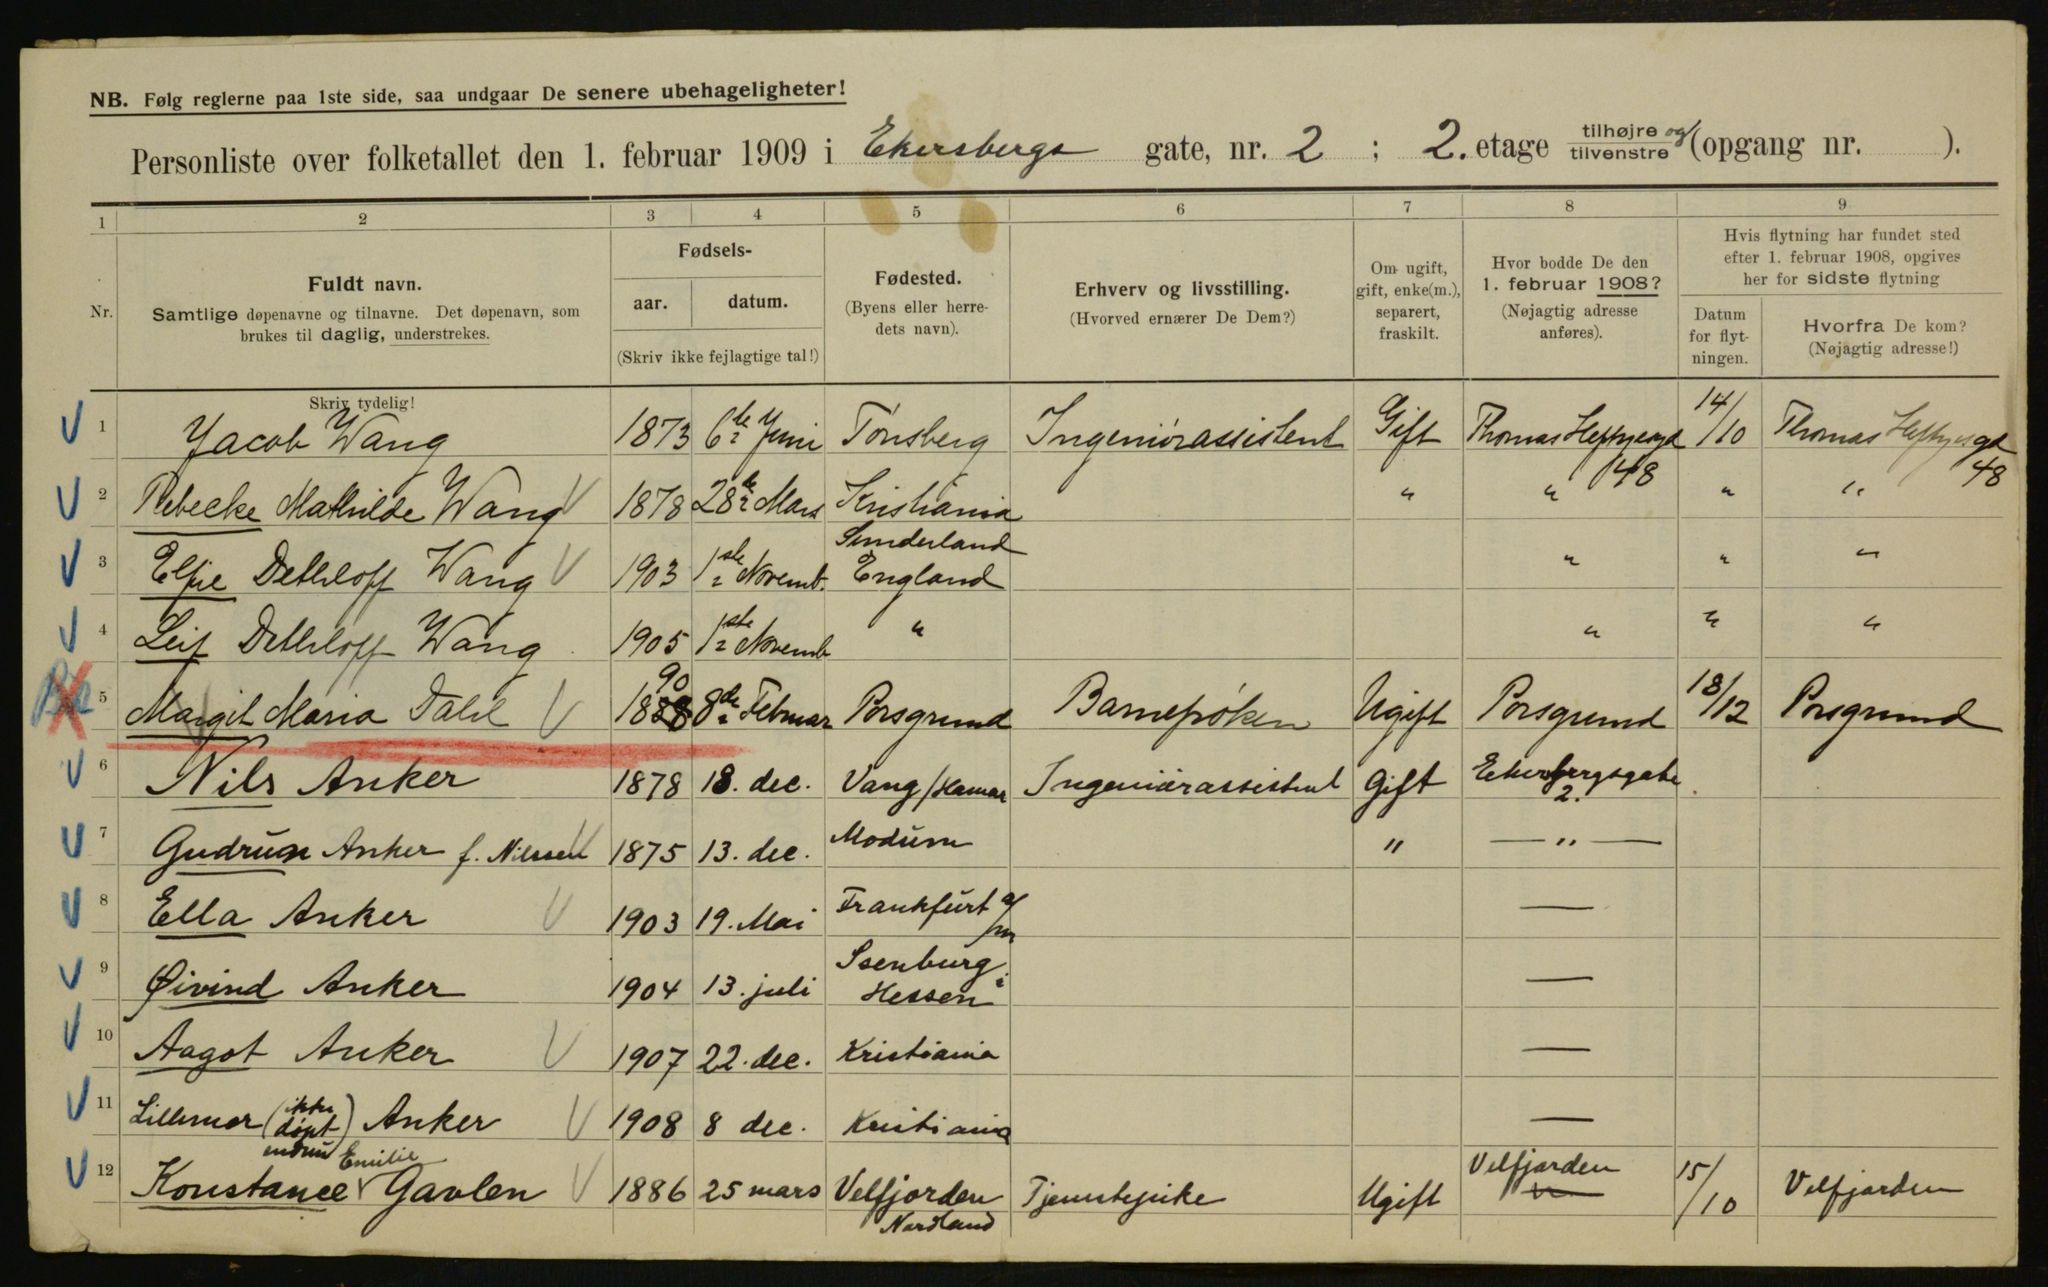 NB. Følg reglerne paa 1ste side, saa undgaar De senere ubehageligheter!
Personliste over folketallet den 1. februar 1909 i Ekersbergs gate, nr. 2 ; 2. etage tilhøjre og tilvenstre (opgang nr. ).
1 2 3 4 5 6 7 8 9
Nr.
Fuldt navn.
Samtlige døpenavne og tilnavne. Det døpenavn, som
brukes til daglig, understrekes.
Fødsels-
aar. datum.
(Skriv ikke fejlagtige tal!)
Fødested.
(Byens eller herre-
dets navn).
Erhverv og livsstilling.
(Hvorved ernærer De Dem?)
Om ugift,
gift, enke(m.),
separert,
fraskilt.
Hvor bodde De den
1. februar 1908?
(Nøjagtig adresse
anføres).
Hvis flytning har fundet sted
efter 1. februar 1908, opgives
her for sidste flytning
Datum
for flyt-
ningen.
Hvorfra De kom?
(Nøjagtig adresse!)
Skriv tydelig!
1 Jacob Wang 1873 6te Juni Tønsberg Ingeniørassistent Gift Thomas Heftyesgd 48 14/10 Thomas Heftyesgd 48
2 Rebecke Mathilde Wang 1878 28de Mars Kristiania " " " "
3 Elsie Dethloff Wang 1903 1ste Novemb. Sunderland England " " "
4 Leif Dethloff Wang 1905 1ste Novemb " " " "
5 Margit Maria Dahl 1888 90 8de Februar Porsgrund Barnefrøken Ugift Porsgrund 18/12 Porsgrund
6 Nils Anker 1878 18. dec. Vang/Hamar Ingeniørassistent Gift Eckersbergsgate 2.
7 Gudrun Anker f. Nilssen 1875 13. dec. Modum " — " —
8 Ella Anker 1903 19. Mai Frankfurt a/m —
9 Øivind Anker 1904 13. juli Isenburg i Hessen —
10 Aagot Anker 1907 22. dec. Kristiania —
11 Lillemor (ikke døpt endnu) Anker 1908 8 dec. Kristiania —
12 Konstance Emilie Gavlen 1886 25 mars Velfjorden Nordland Tjenestepike Ugift Velfjorden 15/10 Velfjorden